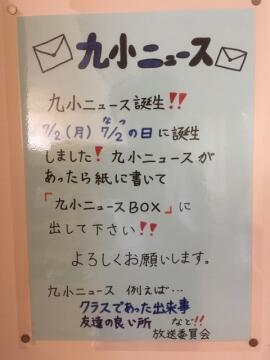 九小ニュース
九小ニュース誕生!!
7/2(月)7/2の日に誕生
なつ
しました!九小ニュースが
あったら紙に書いて
「九小ニュースBOX」に
出して下さい!!
よろしくお願いします。
九小ニュース 例えば…
クラスであった出来事
友達の良い所 など!!
放送委員会